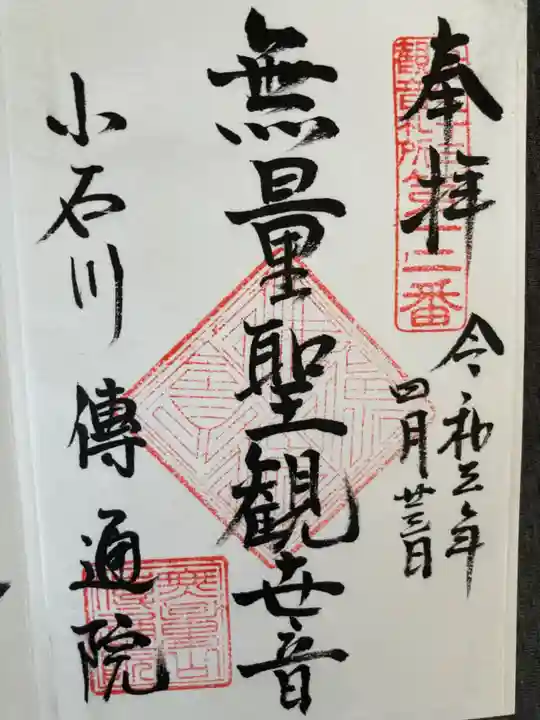 奉拝
令和三年
四月廿三日
観音札所第十二番
無量聖観世音
小石川 傳通院